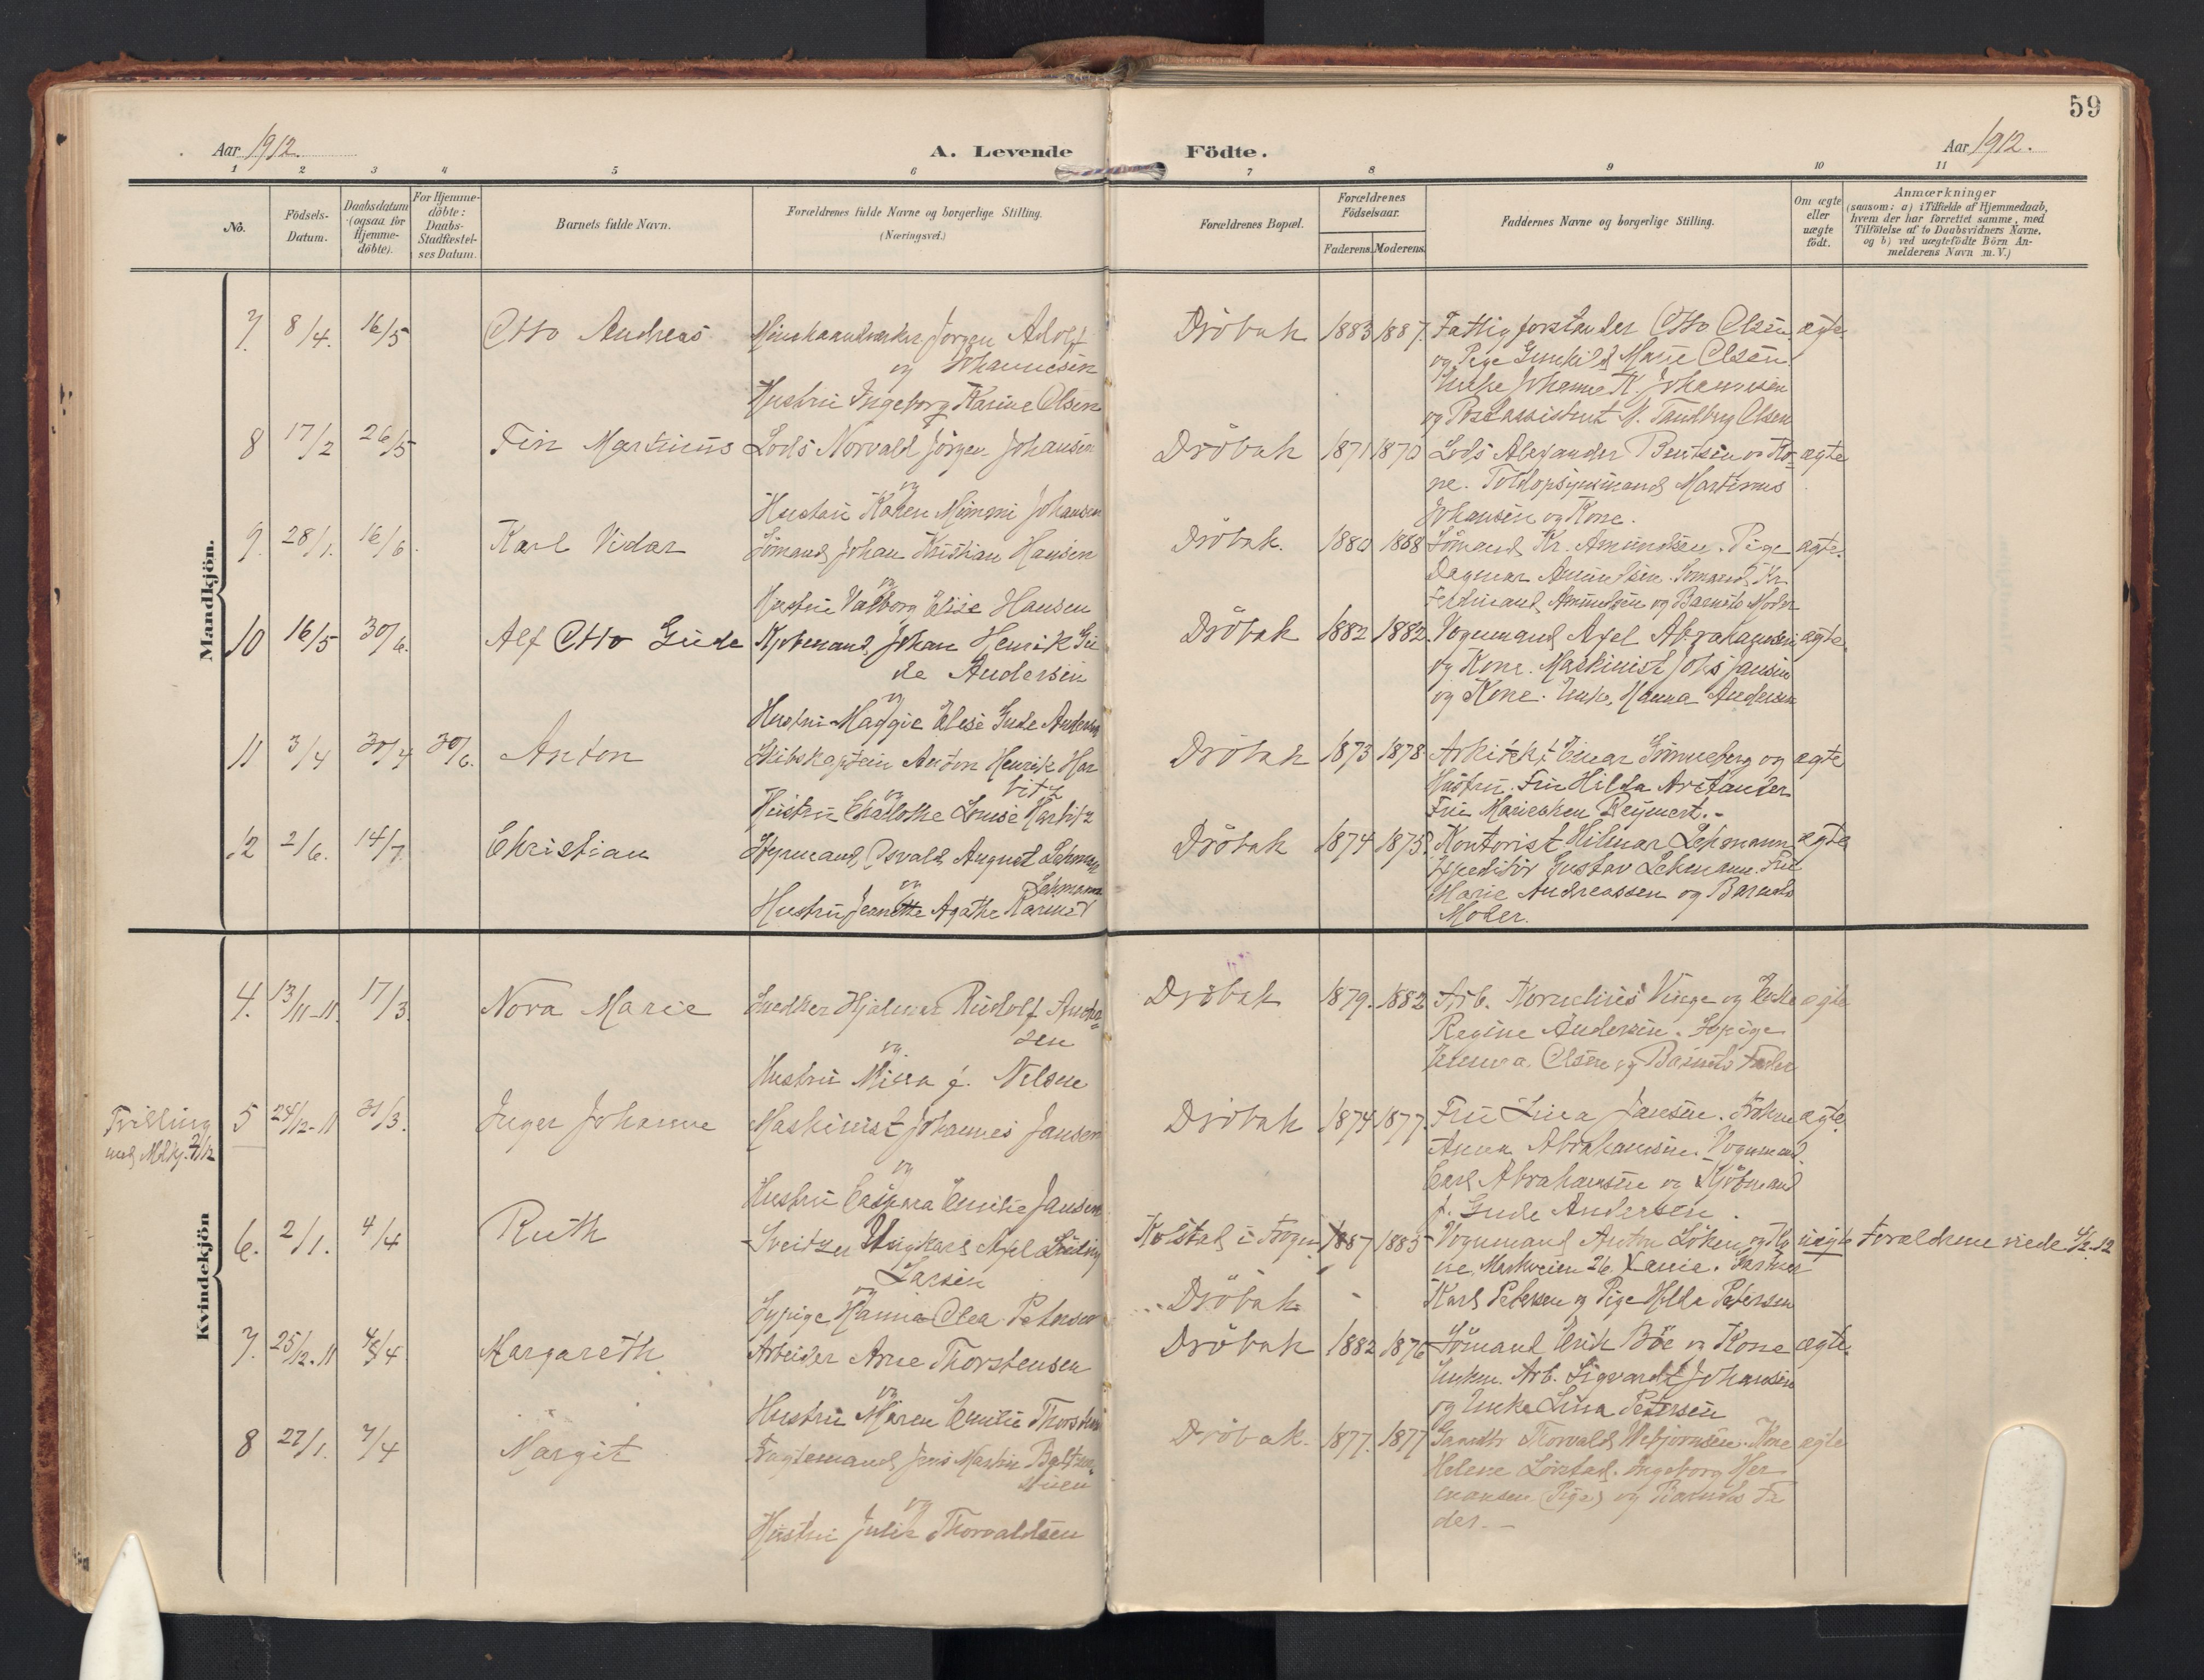 59
Aar 1912.
A. Levende
Födte.
Aar 1912.
1 2 3 4 5 6 7 8 9 10 11
Nö.
Födsels-
Datum.
Daabsdatum
(ogsaa for
Hjemme-
döbte).
For Hjemme-
döbte:
Daabs-
Stadfæstel-
ses Datum.
Barnets fulde Navn.
Forældrenes fulde Navne og borgerlige Stilling.
(Næringsvei.)
Forældrenes Bopæl.
Forældrenes
Födselsaar.
Faderens. Moderens.
Faddernes Navne og borgerlige Stilling.
Om ægte
eller
uægte
födt.
Anmærkninger
(saasom: a) i Tilfælde af Hjemmedaab,
hvem der har forrettet samme, med
Tilföielse af to Daabsvidners Navne,
og b) ved uægtefödte Börn An-
melderens Navn m. V.)
Mandkjön.
7. 8/4. 16/5 Otto Andreas
Jörgen Adolf
og Johannesen
Hustru Ingeborg Karine Olsen
Dröbak 1883 1887.
Fattigforstander Otto Olsen
og Pige Gunhild Marie Olsen
Enke Johanne K. Johannesen
og Postassistent M. Tandberg Olsen
ægte
8 17/2 26/5 Fin Martinus
Lods Norvald Jörgen Johansen
og
Hustru Karen Mimmi Johansen
Dröbak 1871 1870
Lods Alexander Bentsen og Ko-
ne. Toldopsynsmand Martinus
Johansen og Kone.
ægte
9. 28/1. 16/6. Karl Vidar
Sömand Johan Kristian Hansen
og
Hustru Valborg Elise Hansen
Dröbak. 1880 1888
Sömand Kr. Amundsen. Pige
Dagmar Amundsen. Sömand Kr.
Ferdinand Amundsen og Barnets Moder
ægte.
10 16/5 30/6. Alf Otto Gude
Kjöbmand Johan Henrik Gu
de Andersen
og
Hustru Maggie Elise Gude Andersen
Dröbak 1882 1882.
Vognmand Axel Abrahamsen
og Kone. Maskinist Johs Jansen
og Kone. Enke Hanna Andersen
ægte.
11 3/4 30/4 30/6. Anton
Skibskaptein Anton Henrik Har
bitz
og
Hustru Charlotte Louise Harbitz
Dröbak 1873 1878
Arkitekt Einar Smith
Hustru. Fru Hilda Aritander
Fru Mariechen Reymert.
ægte
12 2/6. 14/7 Christian
Styrmand Osvald August Lehmann
og
Hustru Jeanette Agathe Lehmann
Dröbak 1874 1875.
Kontorist Hilmar Lehmann
Expeditör Gustav Lehmann. Fru
Marie Andreassen og Barnets
Moder.
ægte
Kvindekjön
4. 13/11-11. 17/3. Nora Marie
Snedker Hjalmar Rudolf Ander-
sen
og
Hustru Mina f. Nilsen
Dröbak 1879. 1882
Arb. Kornelius Vinge og Enke
Regine Andersen. Sypige
Emma Olsen og Barnets Fader
ægte
Tvilling
5 24/12-11 31/3. Inger Johanne
Maskinist Johannes Jansen
og
Hustru Caspara Emilie Jansen
Dröbak 1874 1877.
Fru Lina Jansen. Fröken
Anna Abrahamsen. Vognmand
Carl Abrahamsen og Kjöbmand
J. Gude Andersen.
ægte.
6. 2/1. 4/4 Ruth
Larsen
Sypige Hanna Olea Petersen
Kolstad i Frogn 1887 1885
Dröbak
Vognmand Anton Löken og Ko
ne, Markveien 26. Xania.
Karl Petersen og Pige Hilda Petersen
uægte
Forældrene viede
7. 25/12-11 Margareth
Arbeider Arne Thorstensen
og
Hustru Maren Emilie Thorstensen
Dröbak 1882 1876
Sömand Erik Böe og Kone
Enkem. Arb. Sigvardt Johansen
og Enke Lina Petersen
ægte.
8 27/1. 7/4 Margit
Fragtemand Jens Martin
og
Hustru Julie Thorvaldsen
Dröbak. 1877. 1877
Thorvald Vebjörnsen. Kone
Helene Lövstad. Ingeborg Her
mansen (Pige) og Barnets Fa
der.
ægte